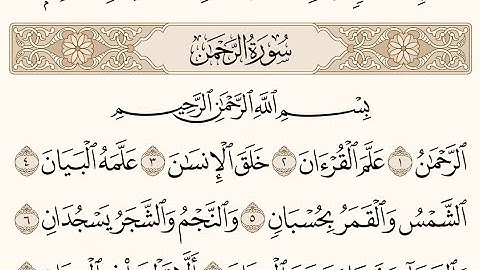 سُورَةُ الرَّحۡمَٰن
بِسۡمِ اللَّهِ الرَّحۡمَٰنِ الرَّحِيمِ
الرَّحۡمَٰنُ ١ عَلَّمَ الۡقُرۡءَانَ ٢ خَلَقَ الۡإِنسَٰنَ ٣ عَلَّمَهُ الۡبَيَانَ ٤
الشَّمۡسُ وَالۡقَمَرُ بِحُسۡبَانٖ ٥ وَالنَّجۡمُ وَالشَّجَرُ يَسۡجُدَانِ ٦